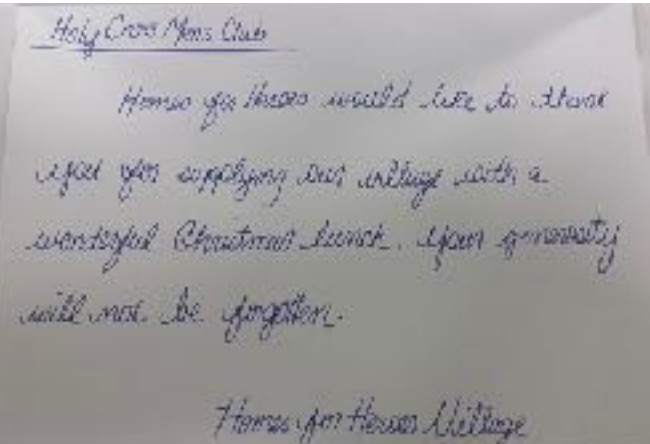 Holy Cross Mens Club
Homes for Heroes would like to thank
you for supplying our village with a
wonderful Christmas lunch. Your generosity
will not be forgotten.
Homes for Heroes Village